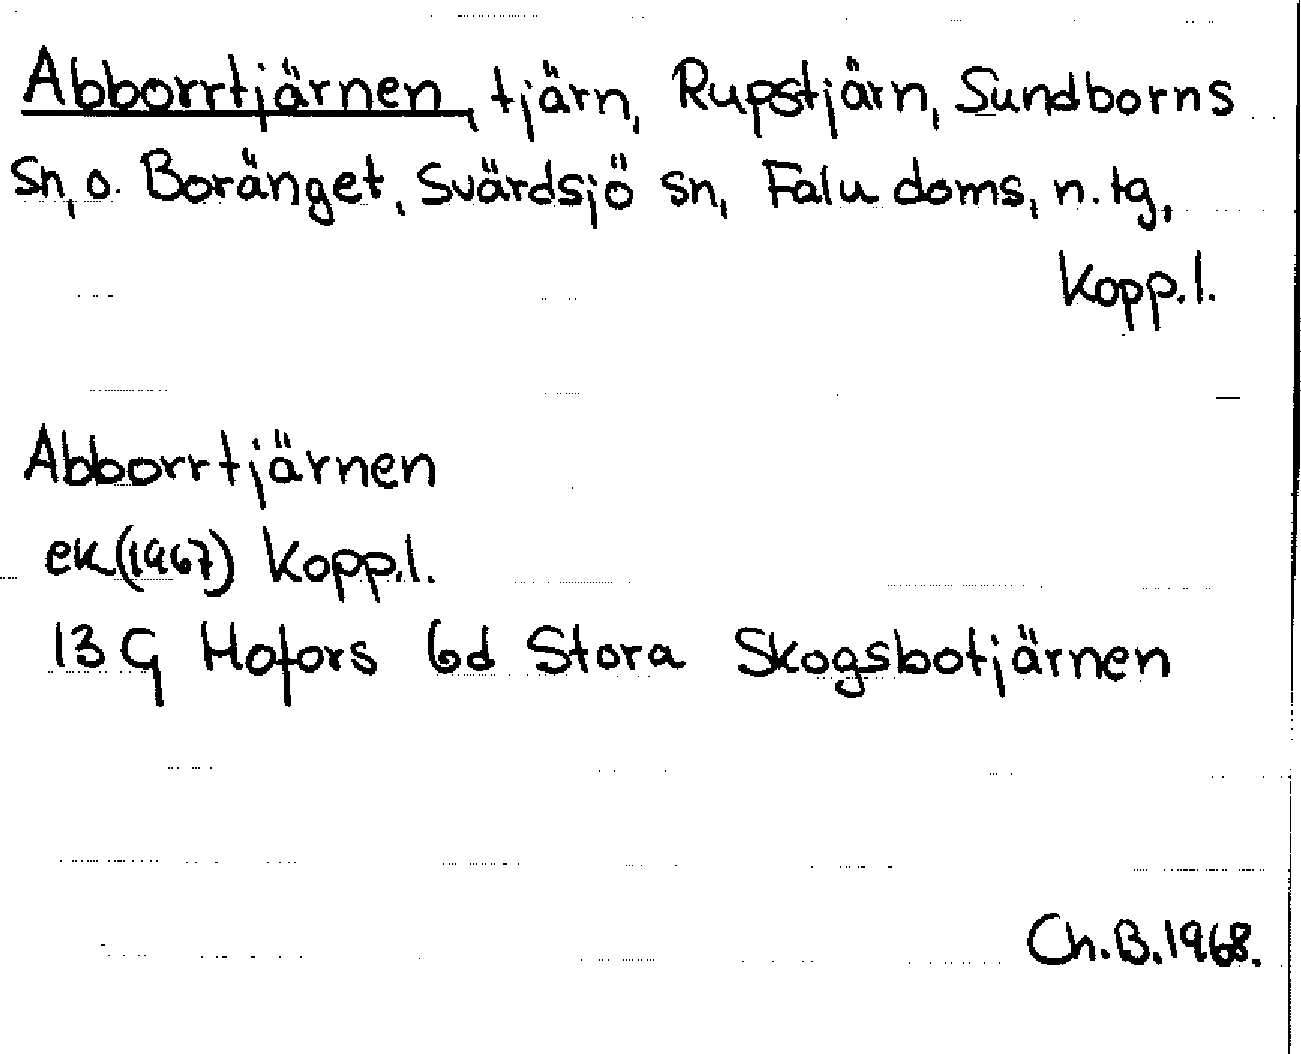 Abborrtjärnen, tjärn, Rupstjärn, Sundborns
sn, o. Boränget, Svärdsjö sn, Falu doms, n. tg,
Kopp.l.
Abborrtjärnen
ek(1967) Kopp.l.
13 G Hofors 6d Stora Skogsbotjärnen
Ch.B.1968.